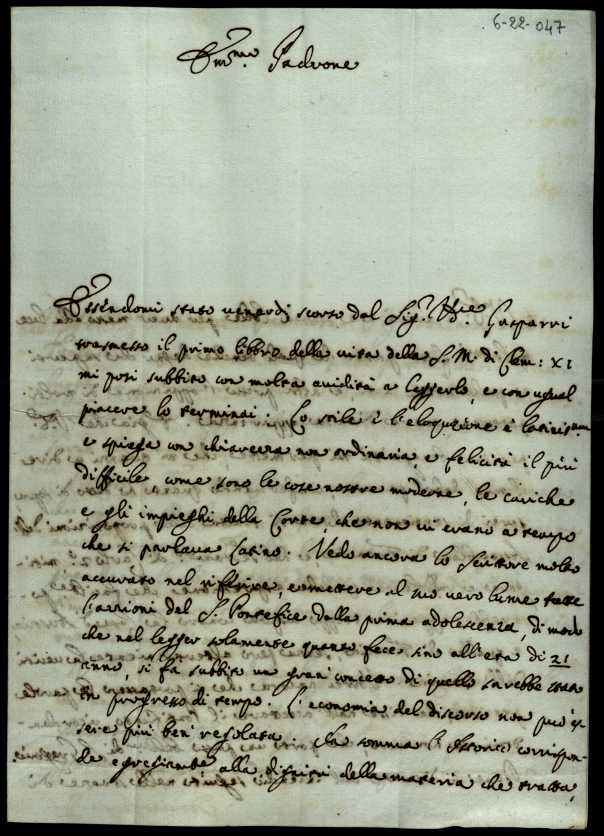 6-22-047
Em.mo Padrone
Essendomi stato venerdi scorso dal Sig.r Gasparri
trasmesso il primo libbro della vita della S. M. di Clem: XI
mi posi subbito con molta avidità a leggerlo, e con ugual
piacere lo terminai. Lo stile e l'eloquzione è latiniss.ma
e spiega con chiarezza non ordinaria, e felicità il più
difficile, come sono le cose nostre moderne, le cariche
e gli impieghi della Corte, che non vi erano a tempo
che si parlava latino. Vedo ancora lo Scrittore molto
accurato nel riflettere, e mettere al suo vero lume tutte
l'azzioni del S. Pontefice dalla prima adolescenza, di modo
che nel legger solamente quanto fece sino all'età di 21
anno, si fà subbito un gran concetto di quello sarebbe stato
in progresso di tempo. L'economia del discorso non può es
sere più ben regolata. In somma l'Istorico corrispon-
de egregiam.te alla dignità della materia che tratta,